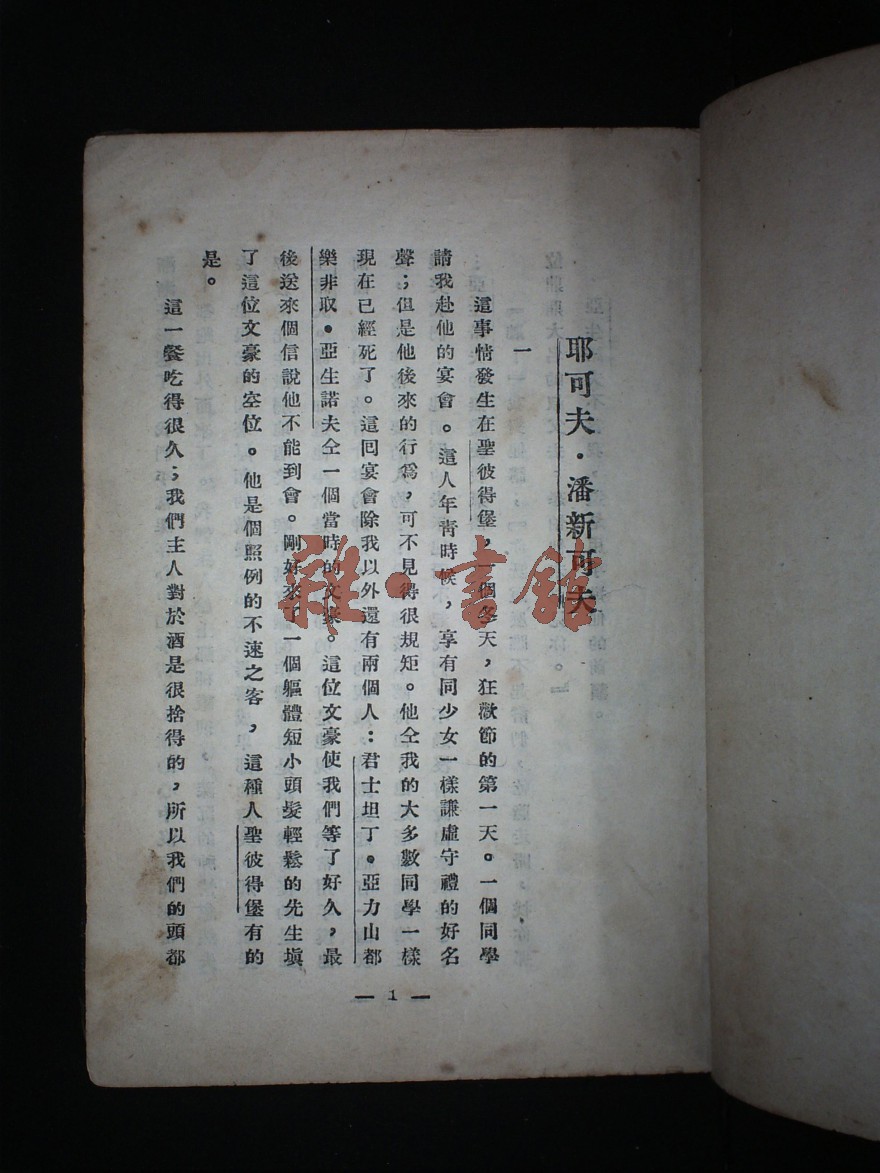 耶可夫·潘新可夫
一
這事情發生在聖彼得堡，一個冬天，狂歡節的第一天。一個同學
請我赴他的宴會。這人年青時候，享有同少女一樣謙虛守禮的好名
聲；但是他後來的行爲，可不見得很規矩。他仝我的大多數同學一樣
現在已經死了。這囘宴會除我以外還有兩個人：君士坦丁。亞力山都
樂非取。亞生諾夫仝一個當時的文豪。這位文豪使我們等了好久，最
後送來個信說他不能到會。剛好來了一個軀體短小頭髮輕鬆的先生塡
了這位文豪的空位。他是個照例的不速之客，這種人聖彼得堡有的
是。
這一餐吃得很久；我們主人對於酒是很捨得的，所以我們的頭都
— 1 —
雜·書館